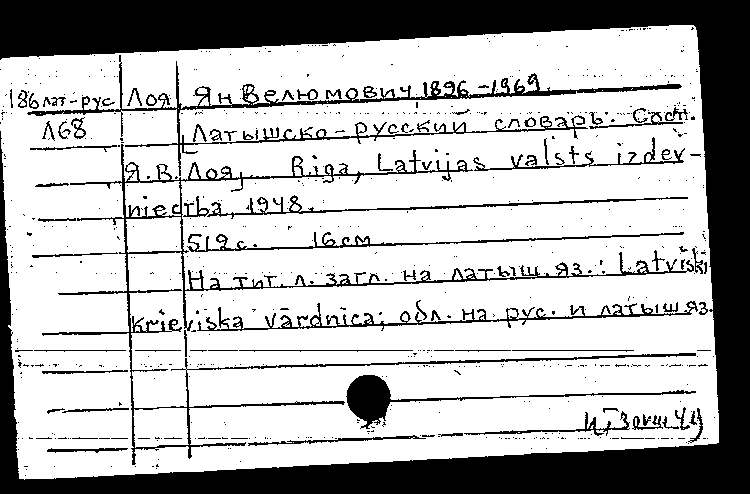 186лат-рус Лоя, Ян Велюмович, 1896-1969.
Л68 Латышско-русский словарь. Сост.
Я.В. Лоя, Riga, Latvijas valsts izdev-
niecība, 1948.
512 с. 16 см
На тит. л. загл. на латыш. яз.: Latviski
krieviska vārdnica; обл. на рус. и латыш яз.